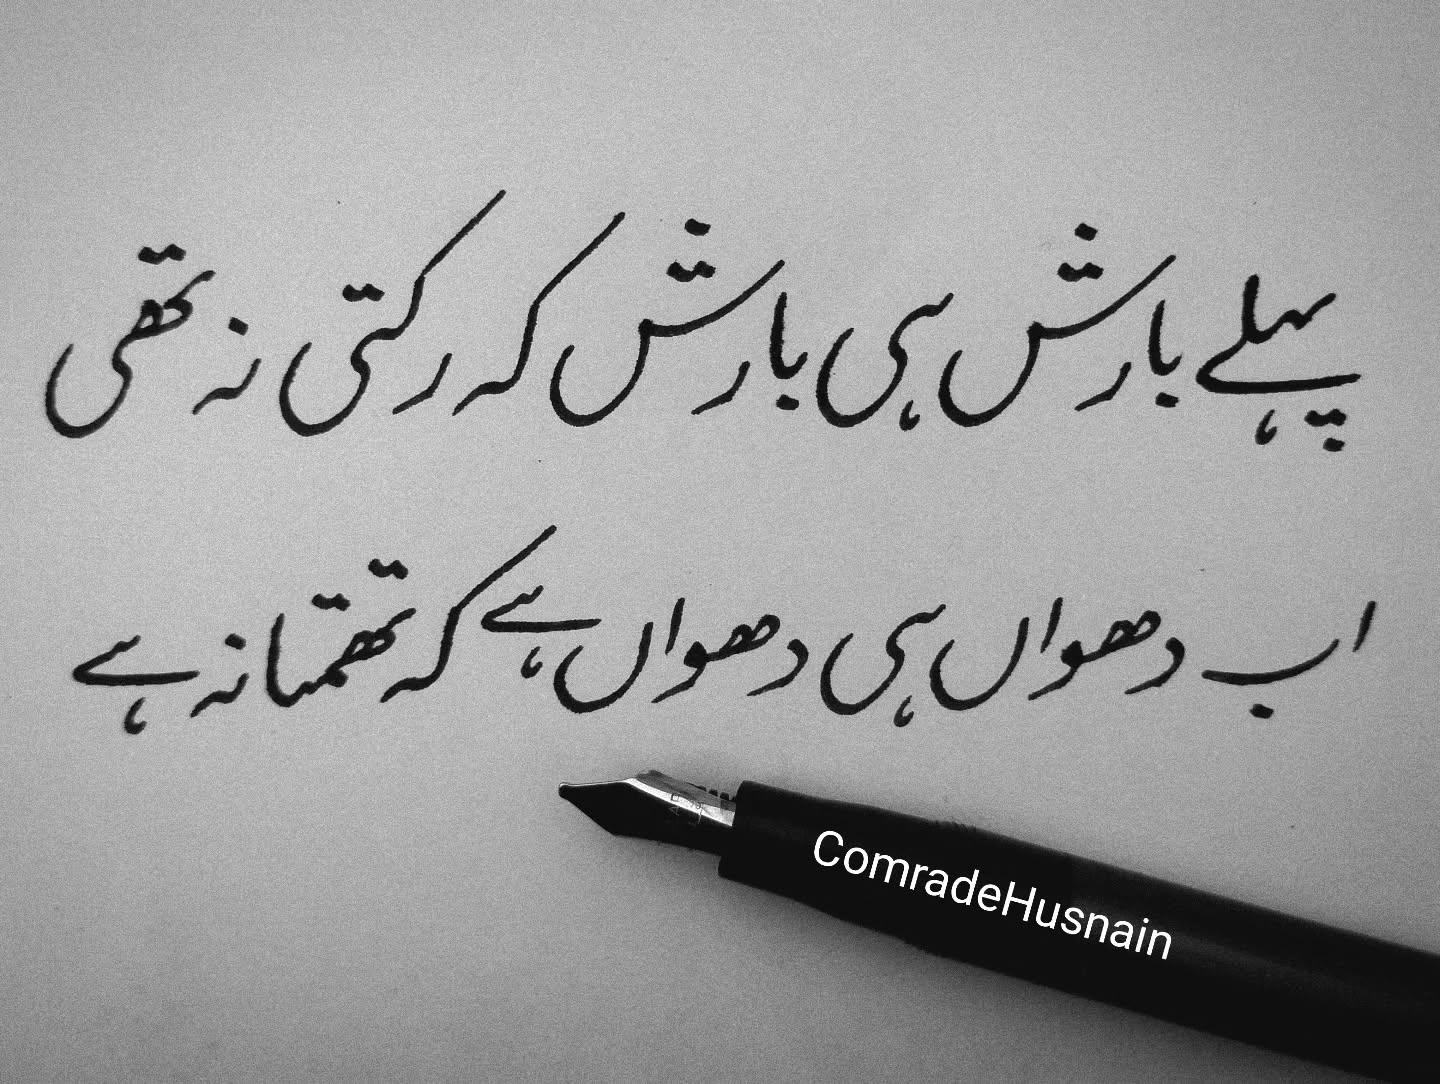 پہلے بارش ہی بارش کہ رکتی نہ تھی
اب دھواں ہی دھواں ہے کہ تھمتا نہ ہے
ComradeHusnain